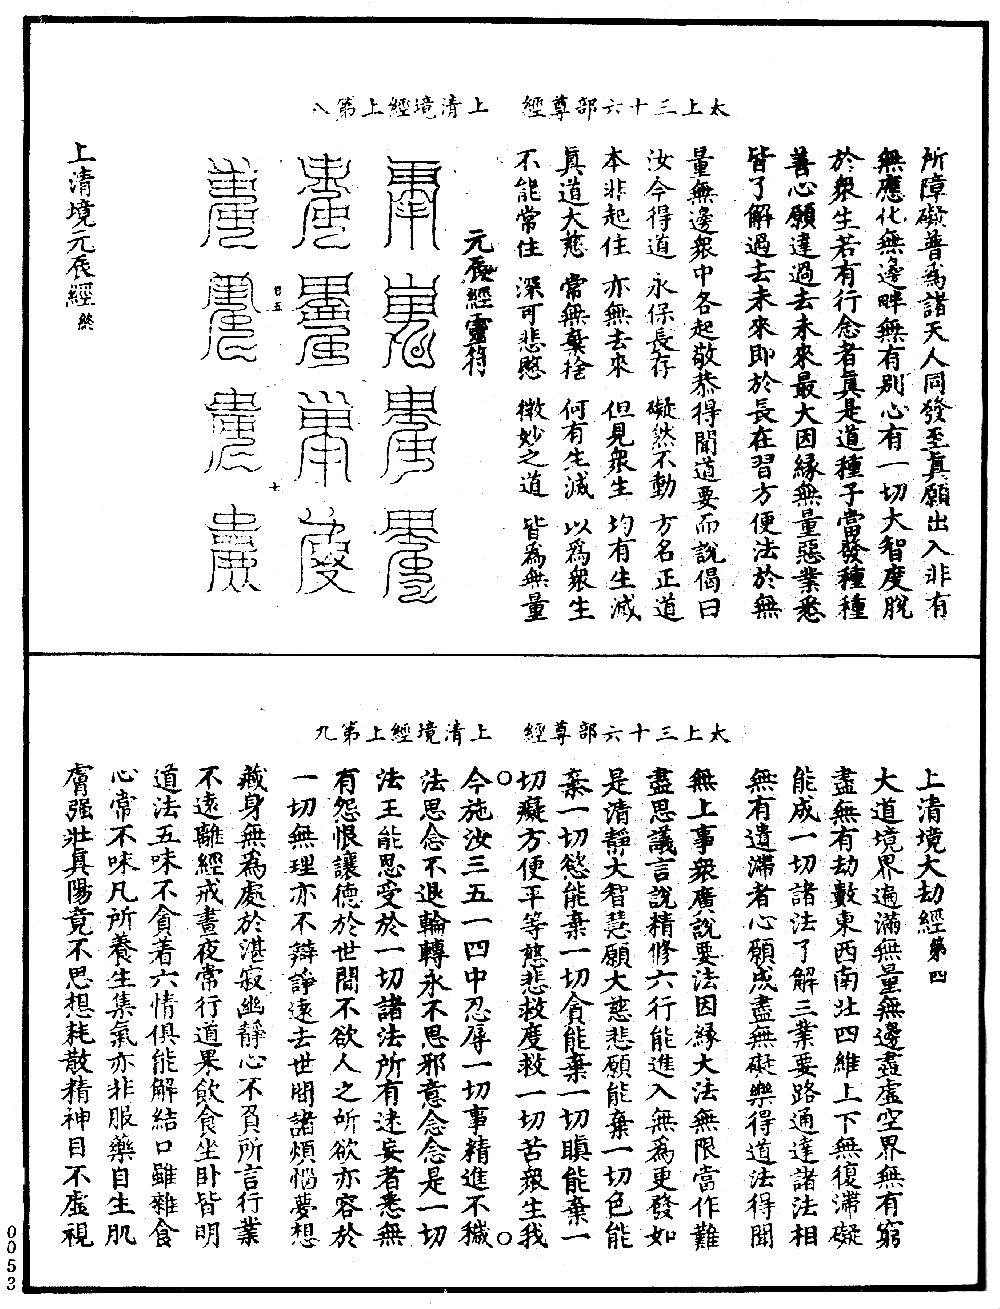 太上三十六部尊經　上清境經上第八
所障礙普為諸天人同發至真願出入非有
無應化無邊畔無有別心有一切大智度脫
於眾生若有行念者真是道種子當發種種
善心願達過去未來最大因緣無量惡業悉
皆了解過去未來即於長在習方便法於無
量無邊眾中各起敬恭得聞道要而說偈曰
汝今得道　永保長存　礙然不動　方名正道
本非起住　亦無去來　但見眾生　均有生滅
真道大慈　常無棄捨　何有生滅　以為眾生
不能常住　深可悲愍　微妙之道　皆為無量
元辰經靈符
七
上清境元辰經終
太上三十六部尊經　上清境經上第九
上清境大劫經第四
大道境界遍滿無量無邊盡虛空界無有窮
盡無有劫數東西南北四維上下無復滯礙
能成一切諸法了解三業要路通達諸法相
無有遺滯者心願成盡無礙樂得道法得聞
無上事眾廣說要法因緣大法無限當作難
盡思議言說精修六行能進入無為更發如
是清靜大智慧願大慈悲願能棄一切色能
棄一切慾能棄一切貪能棄一切瞋能棄一
切癡方便平等慈悲救度救一切苦眾生我
今施汝三五一四中忍辱一切事精進不穢
法思念不退輪轉永不思邪意念念是一切
法王能思受於一切諸法所有迷妄者悉無
有怨恨讓德於世間不欲人之所欲亦容於
一切無理亦不辯諍遠去世間諸煩惱夢想
藏身無為處於湛寂幽靜心不負所言行業
不遠離經戒晝夜常行道果飲食坐臥皆明
道法五味不貪著六情俱能解結口雖雜食
心常不味凡所養生集氣亦非服藥自生肌
膚强壯真陽竟不思想耗散精神目不虛視
0053